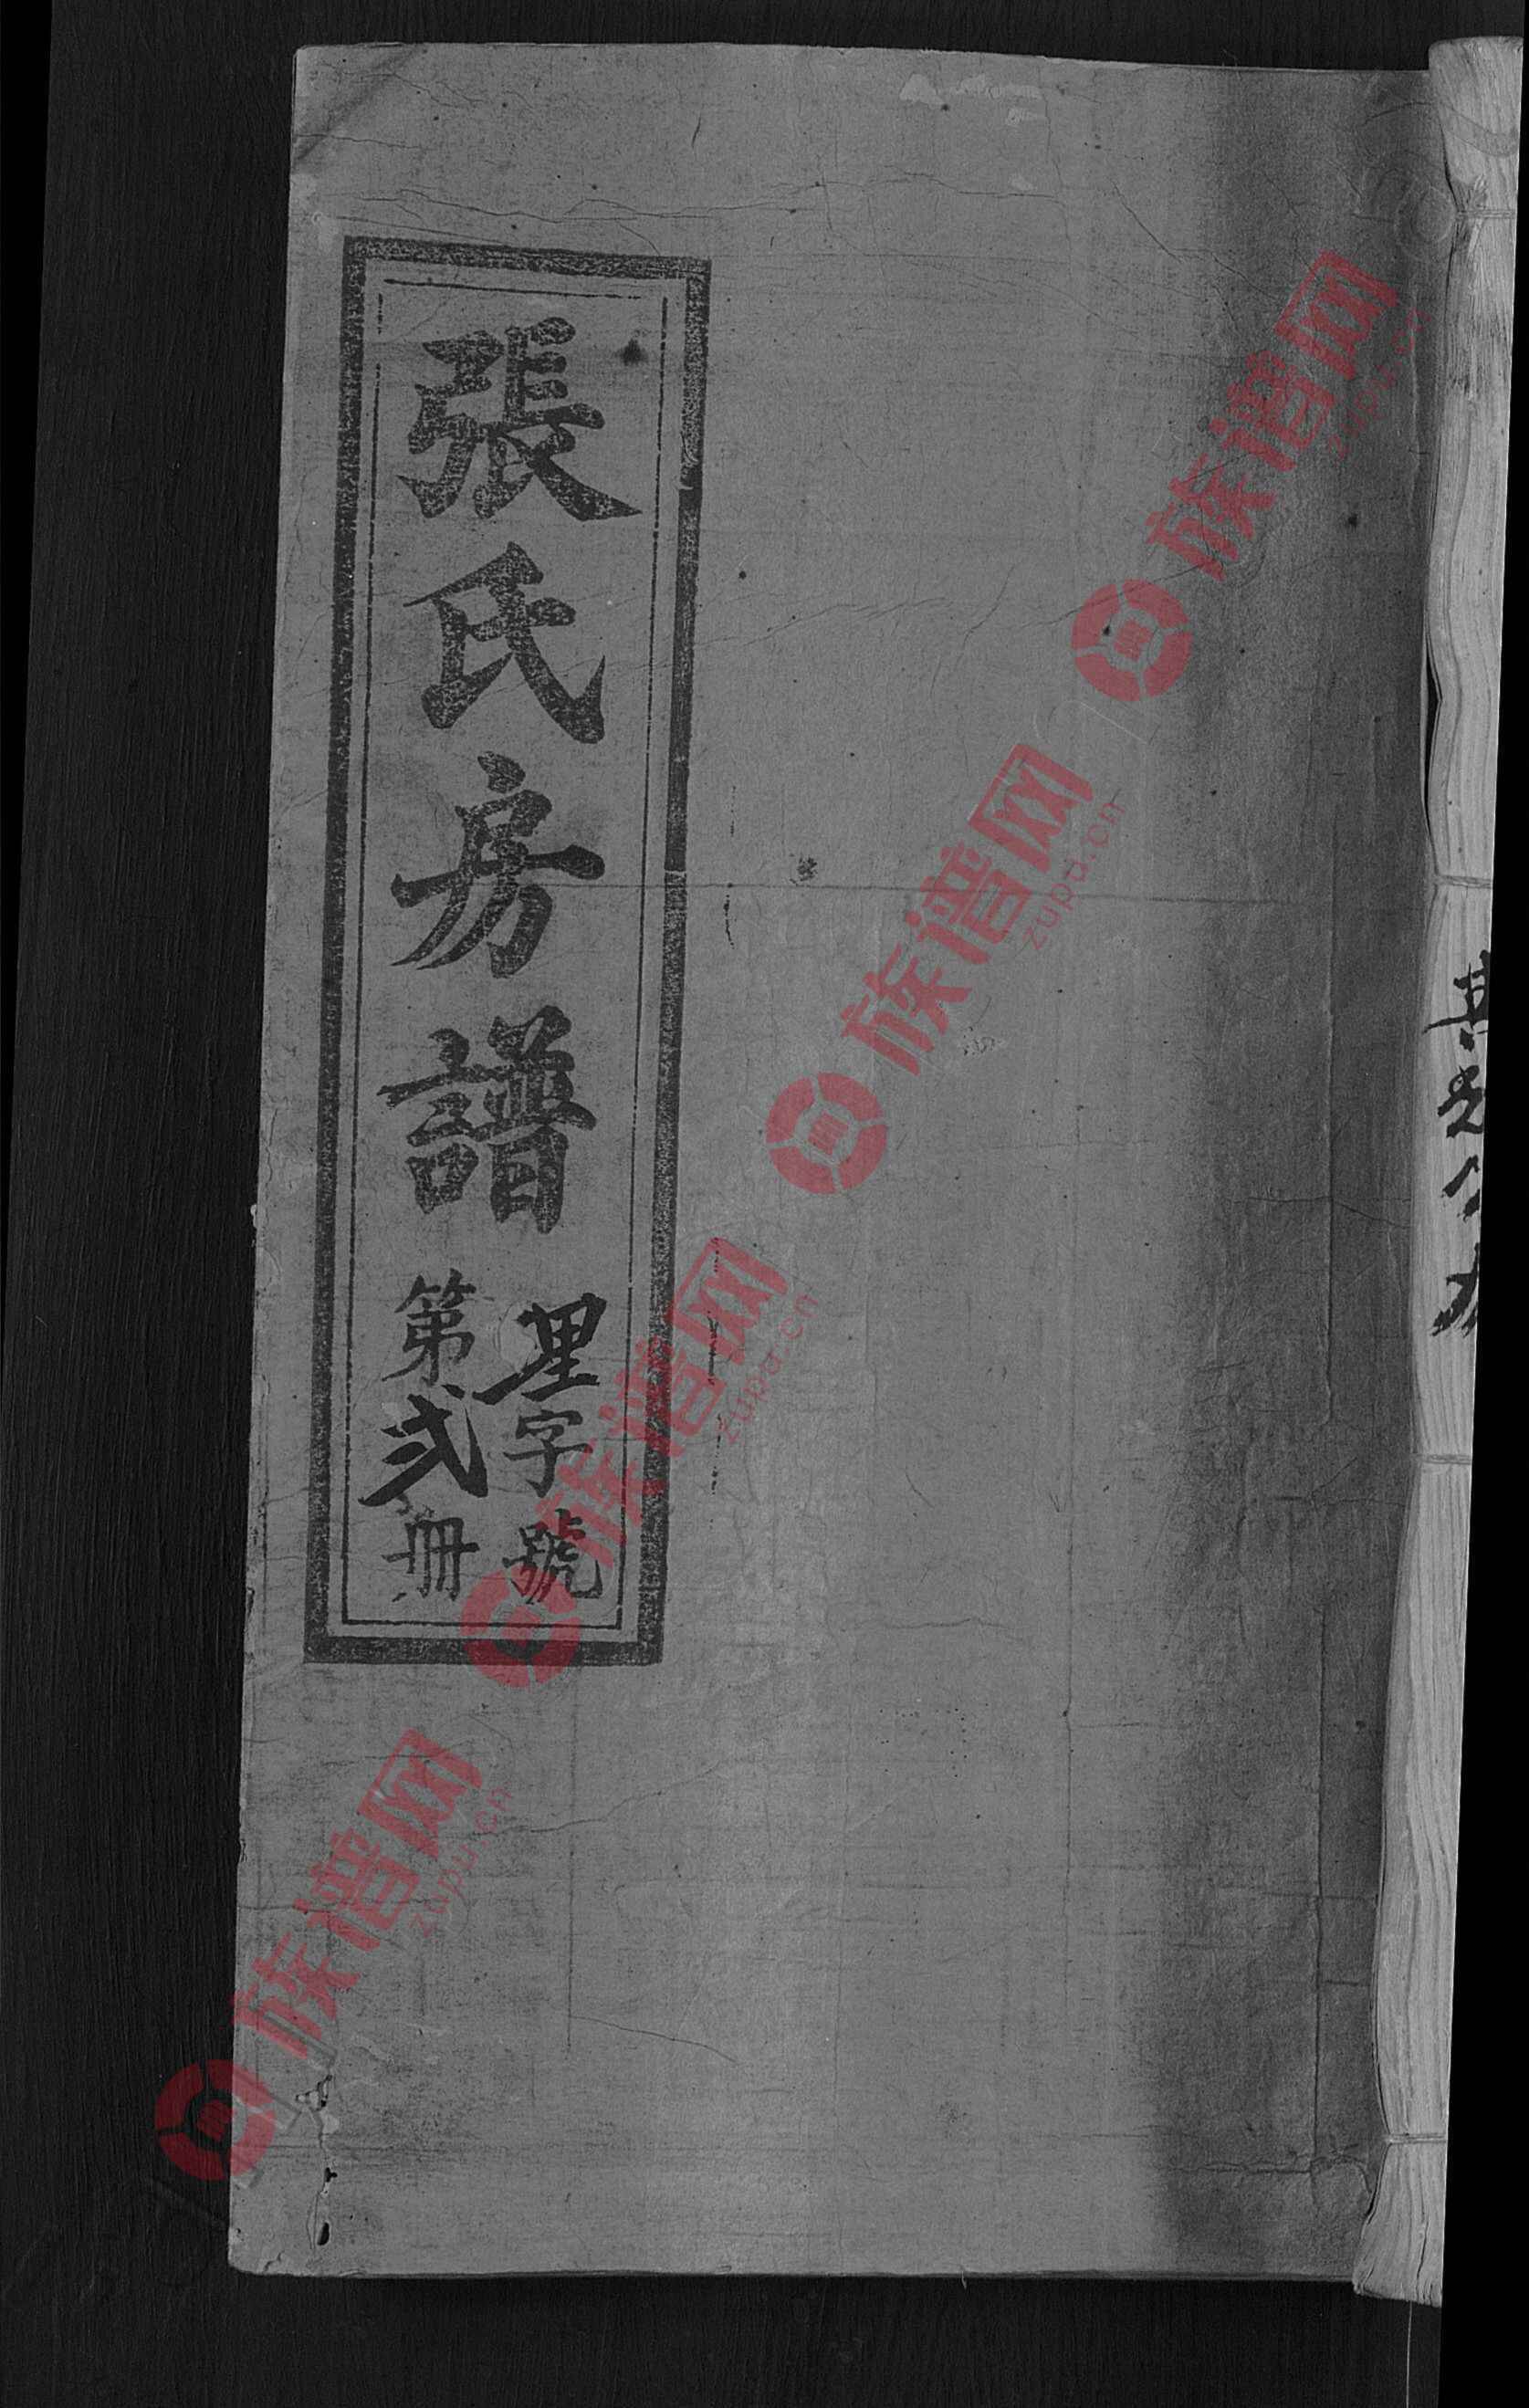 張氏房譜
里字號
第弍冊
族谱网
zupu.cn
族谱网
zupu.cn
族谱网
zupu.cn
族谱网
zupu.cn